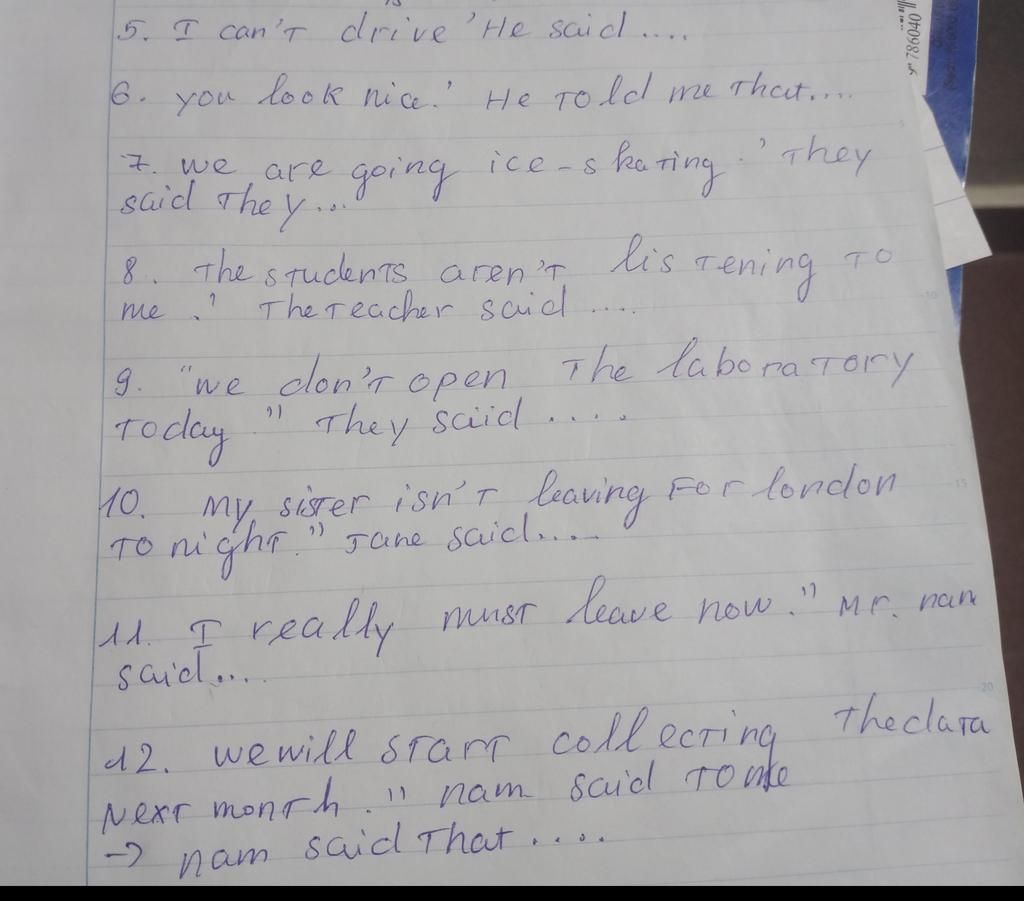 5. I can't drive 'He said ....
6. you look nice.' He told me that....
7. we are going ice-skating.' They
said They...
8. The students aren't listening to
me.' The teacher said ....
9. "we don't open the laboratory
today." They said ....
10. My sister isn't leaving for london
tonight." Jane said....
11. I really must leave now." Mr. nam
said....
12. we will start collecting the data
Next month." nam said to me
→ nam said that ....